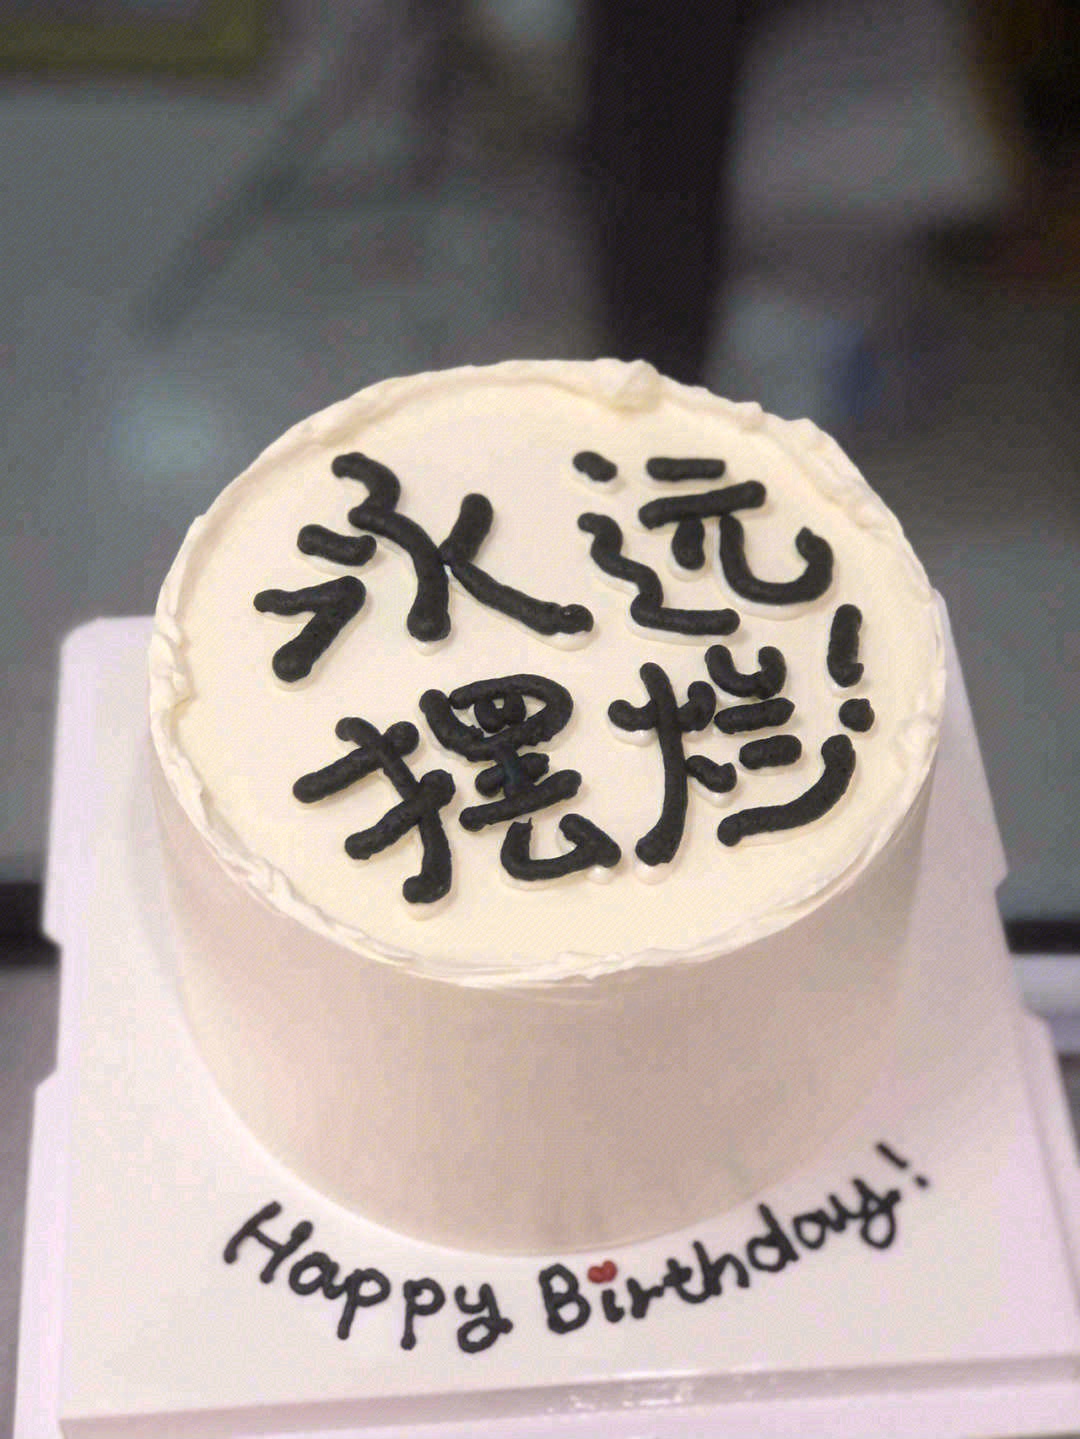 永远
摆烂!
Happy Birthday!